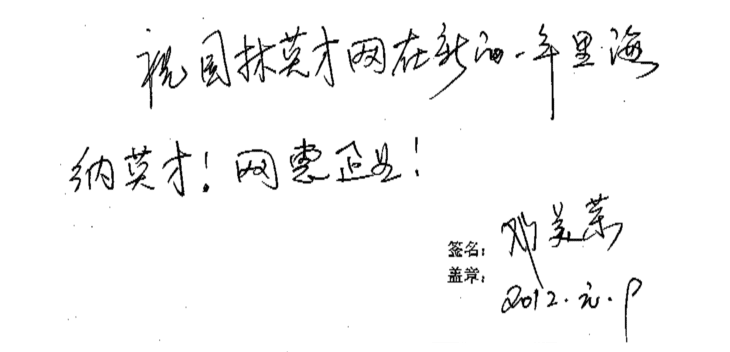 祝园林英才网在新的一年里海
纳英才！网惠企业！
签名：邓美荣
盖章：
2012.元.9